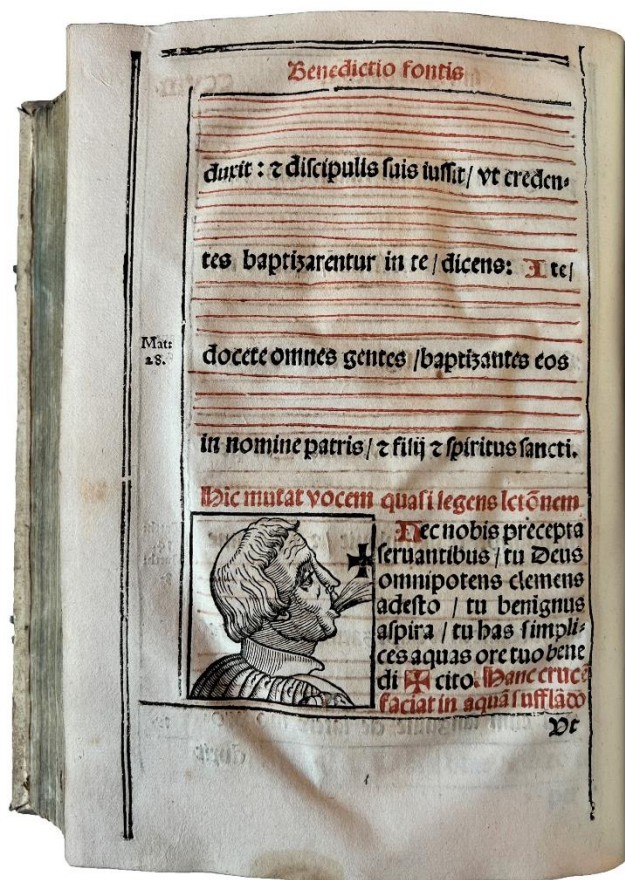 Benedictio fontis
duxit : ⁊ discipulis suis iussit / vt creden⸗
tes baptizarentur in te / dicens: Ite /
Mat:
28.
docete omnes gentes / baptizantes eos
in nomine patris / ⁊ filij ⁊ spiritus sancti.
Hic mutat vocem quasi legens lctōnem
Nec nobis precepta
seruantibus / tu Deus
omnipotens clemens
adesto / tu benignus
aspira / tu has simpli⸗
ces aquas ore tuo bene
di ✠ cito. Hanc crucē
faciat in aquā sufflādo
Vt